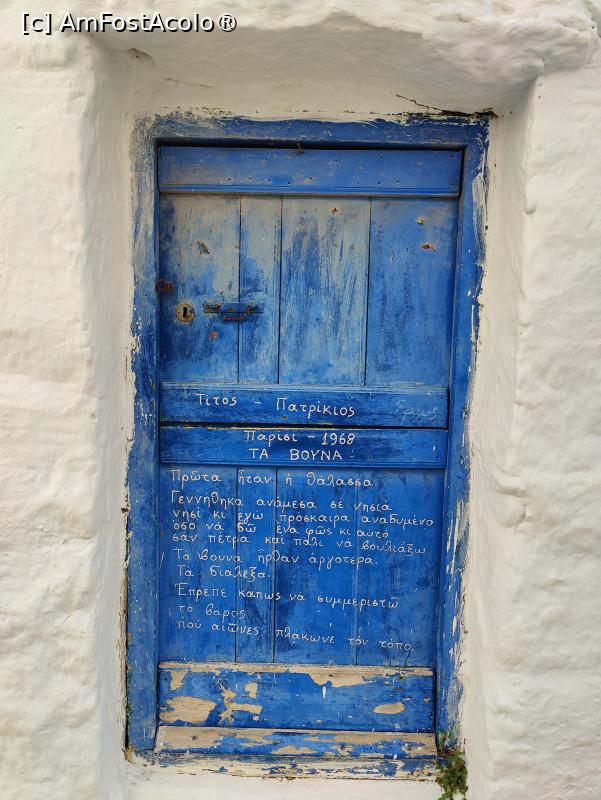 [c] AmFostAcolo®
Τίτος - Πατρίκιος
Παρίσι - 1968
ΤΑ ΒΟΥΝΑ
Πρῶτα ἦταν ἡ θάλασσα
Γεννήθηκα ἀνάμεσα σέ νησιά
νησί κι ἐγώ πρόσκαιρα ἀναδυμένο
ὅσο νά δῶ ἕνα φῶς κι αὐτό
σάν πέτρα καί πάλι νά βουλιάξω
Τά βουνά ἦρθαν ἀργότερα.
Τά διάλεξα.
Ἔπρεπε κάπως νά συμμεριστῶ
τό βάρος
πού αἰῶνες πλάκωνε τόν τόπο.